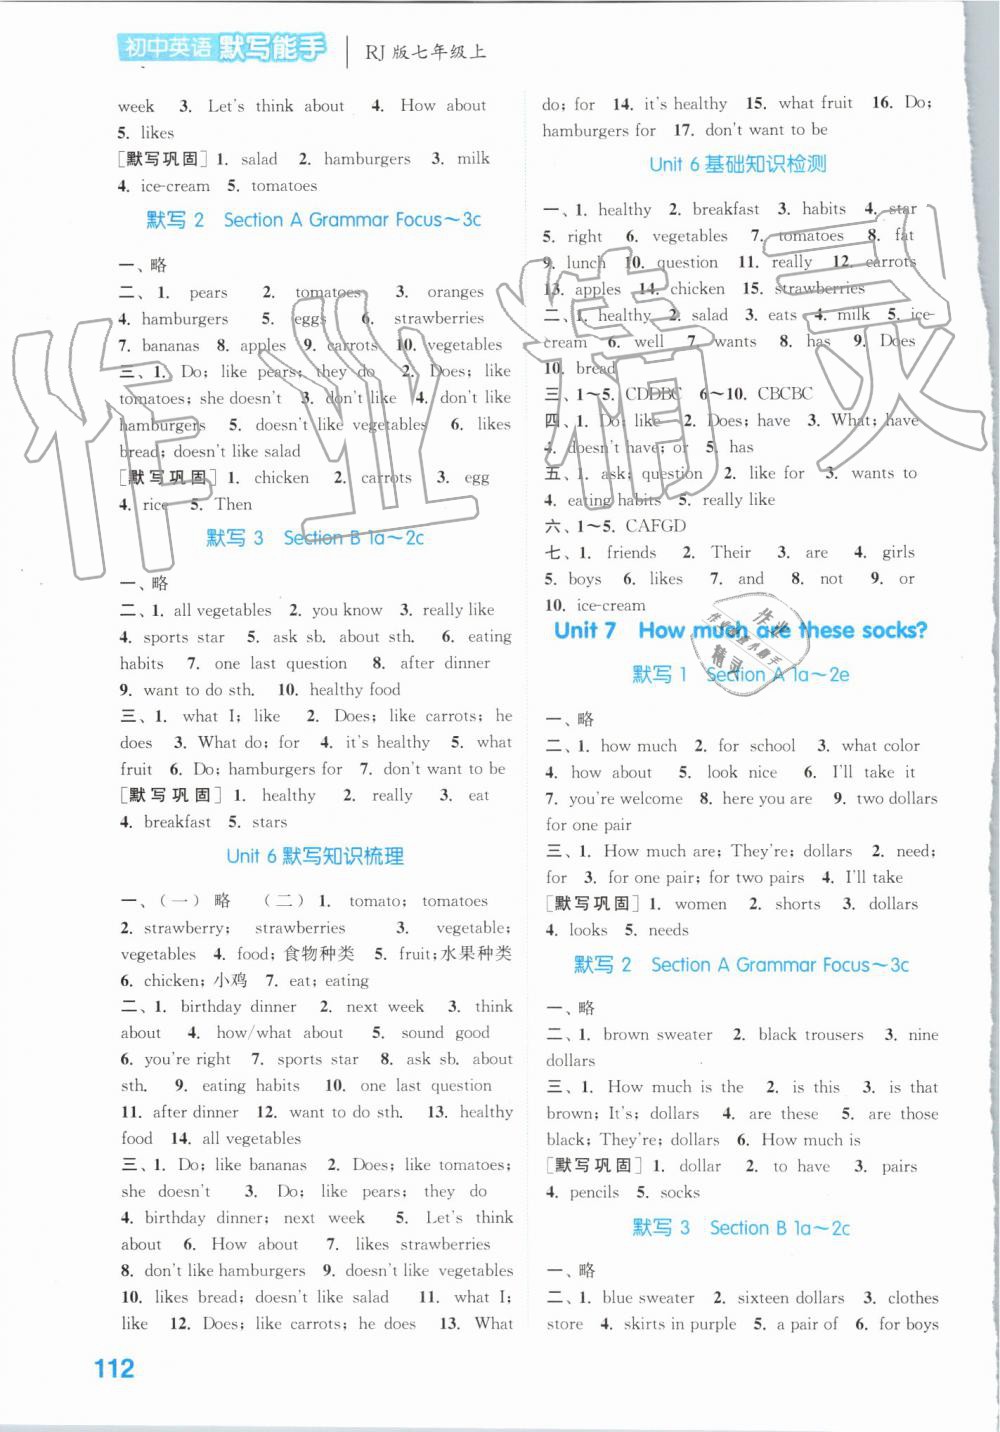 初中英语 默写能手 RJ 版七年级上
week 3. Let's think about 4. How about
5. likes
[默写巩固] 1. salad 2. hamburgers 3. milk
4. ice-cream 5. tomatoes
默写 2 Section A Grammar Focus~3c
一、略
二、1. pears 2. tomatoes 3. oranges
4. hamburgers 5. eggs 6. strawberries
7. bananas 8. apples 9. carrots 10. vegetables
三、1. Do; like pears; they do 2. Does; like
tomatoes; she doesn't 3. don't like 4. don't like
hamburgers 5. doesn't like vegetables 6. likes
bread; doesn't like salad
[默写巩固] 1. chicken 2. carrots 3. egg
4. rice 5. Then
默写 3 Section B 1a~2c
一、略
二、1. all vegetables 2. you know 3. really like
4. sports star 5. ask sb. about sth. 6. eating
habits 7. one last question 8. after dinner
9. want to do sth. 10. healthy food
三、1. what I; like 2. Does; like carrots; he
does 3. What do; for 4. it's healthy 5. what
fruit 6. Do; hamburgers for 7. don't want to be
[默写巩固] 1. healthy 2. really 3. eat
4. breakfast 5. stars
Unit 6 默写知识梳理
一、(一) 略 (二) 1. tomato; tomatoes
2. strawberry; strawberries 3. vegetable;
vegetables 4. food; 食物种类 5. fruit; 水果种类
6. chicken; 小鸡 7. eat; eating
二、1. birthday dinner 2. next week 3. think
about 4. how/what about 5. sound good
6. you're right 7. sports star 8. ask sb. about
sth. 9. eating habits 10. one last question
11. after dinner 12. want to do sth. 13. healthy
food 14. all vegetables
三、1. Do; like bananas 2. Does; like tomatoes;
she doesn't 3. Do; like pears; they do
4. birthday dinner; next week 5. Let's think
about 6. How about 7. likes strawberries
8. don't like hamburgers 9. doesn't like vegetables
10. likes bread; doesn't like salad 11. what I;
like 12. Does; like carrots; he does 13. What
112
do; for 14. it's healthy 15. what fruit 16. Do;
hamburgers for 17. don't want to be
Unit 6 基础知识检测
一、1. healthy 2. breakfast 3. habits 4. star
5. right 6. vegetables 7. tomatoes 8. fat
9. lunch 10. question 11. really 12. carrots
13. apples 14. chicken 15. strawberries
二、1. healthy 2. salad 3. eats 4. milk 5. ice-
cream 6. well 7. wants 8. has 9. Does
10. bread
三、1~5. CDDBC 6~10. CBCBC
四、1. Do; like 2. Does; have 3. What; have
4. doesn't have; or 5. has
五、1. ask; question 2. like for 3. wants to
4. eating habits 5. really like
六、1~5. CAFGD
七、1. friends 2. Their 3. are 4. girls
5. boys 6. likes 7. and 8. not 9. or
10. ice-cream
Unit 7 How much are these socks?
默写 1 Section A 1a~2e
一、略
二、1. how much 2. for school 3. what color
4. how about 5. look nice 6. I'll take it
7. you're welcome 8. here you are 9. two dollars
for one pair
三、1. How much are; They're; dollars 2. need;
for 3. for one pair; for two pairs 4. I'll take
[默写巩固] 1. women 2. shorts 3. dollars
4. looks 5. needs
默写 2 Section A Grammar Focus~3c
一、略
二、1. brown sweater 2. black trousers 3. nine
dollars
三、1. How much is the 2. is this 3. is that
brown; It's; dollars 4. are these 5. are those
black; They're; dollars 6. How much is
[默写巩固] 1. dollar 2. to have 3. pairs
4. pencils 5. socks
默写 3 Section B 1a~2c
一、略
二、1. blue sweater 2. sixteen dollars 3. clothes
store 4. skirts in purple 5. a pair of 6. for boys
作业精灵